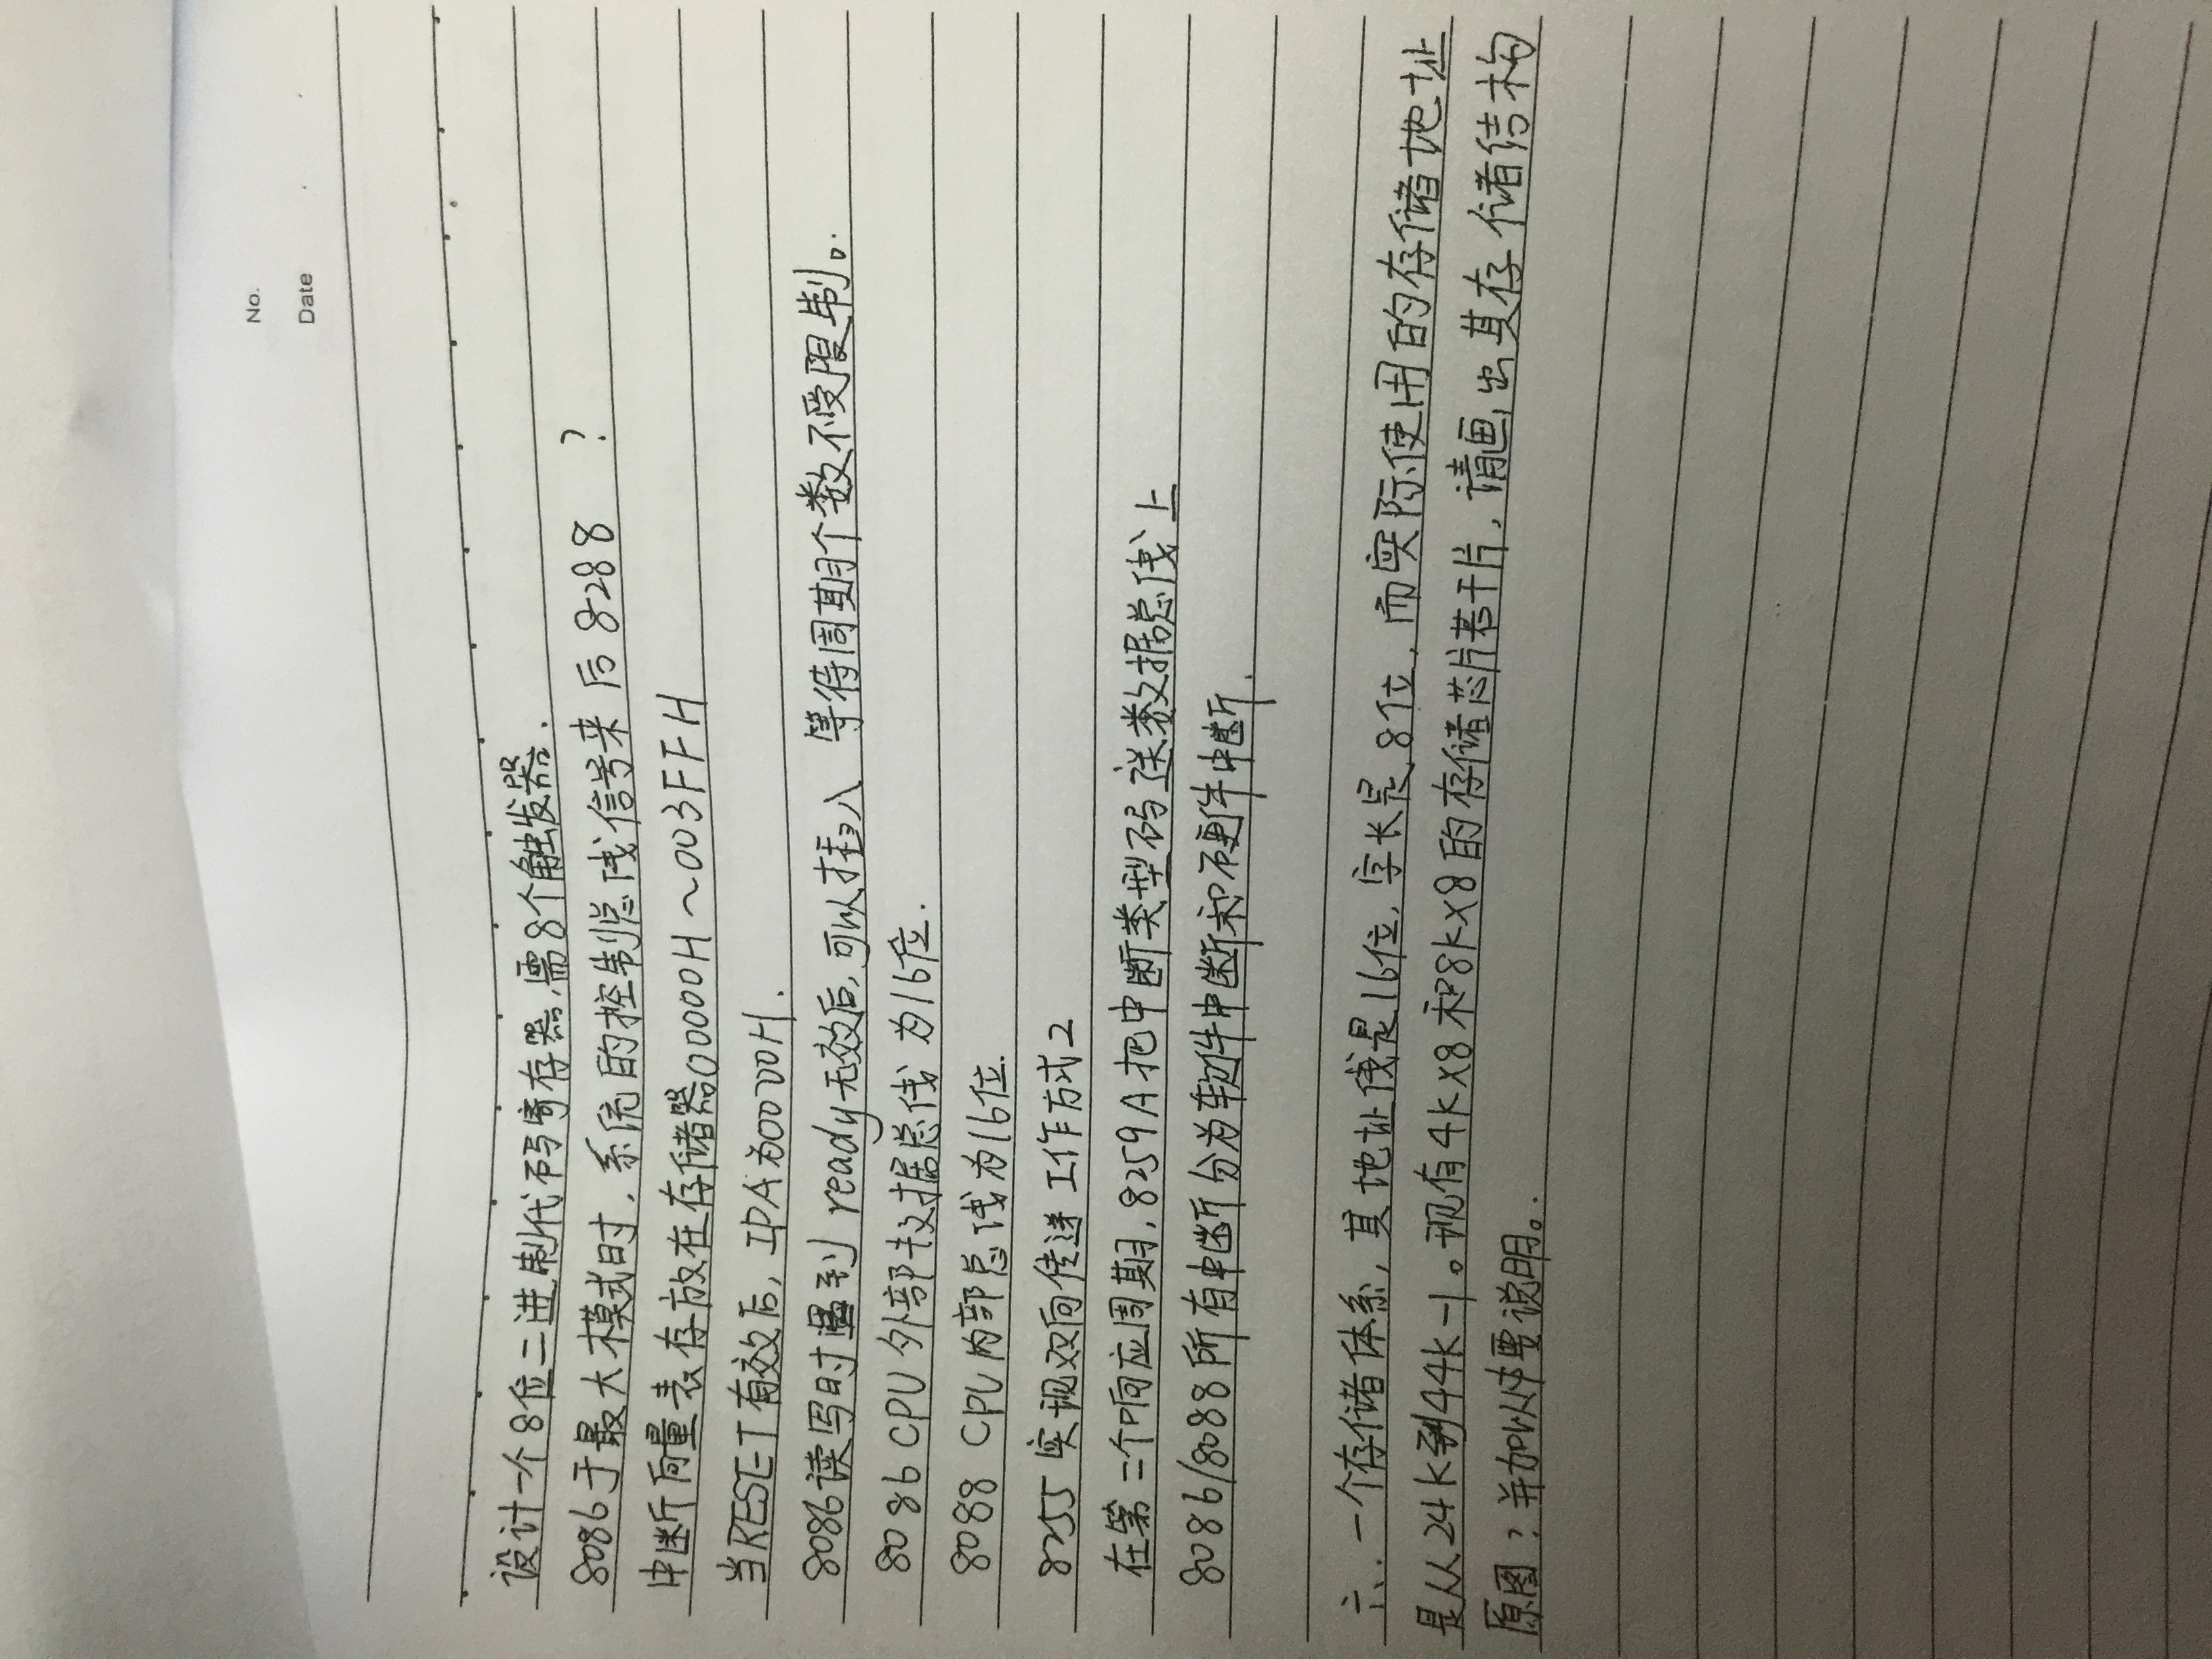 No.
Date
设计一个8位二进制代码寄存器,需8个触发器.
8086于最大模式时,系统的控制总线信号来后8288 ?
中断向量表存放在存储器00000H~003FFH
当RESET有效后,IPA为0000H.
8086读写时遇到 ready无效后,可以插入 等待周期个数不受限制。
8086 CPU 外部数据总线 为16位.
8088 CPU内部总线为16位.
8255 实现双向传送 工作方式2
在第二个响应周期,8259A把中断类型码送数据总线上
8086/8088所有中断分为软件中断和硬件中断.
六.一个存储体系,其地址线是16位,字长是8位,而实际使用的存储地址
是从24K到44K-1。现有4K×8和8K×8的存储芯片若干片,请画出其存储结构
原图?并加以要说明。